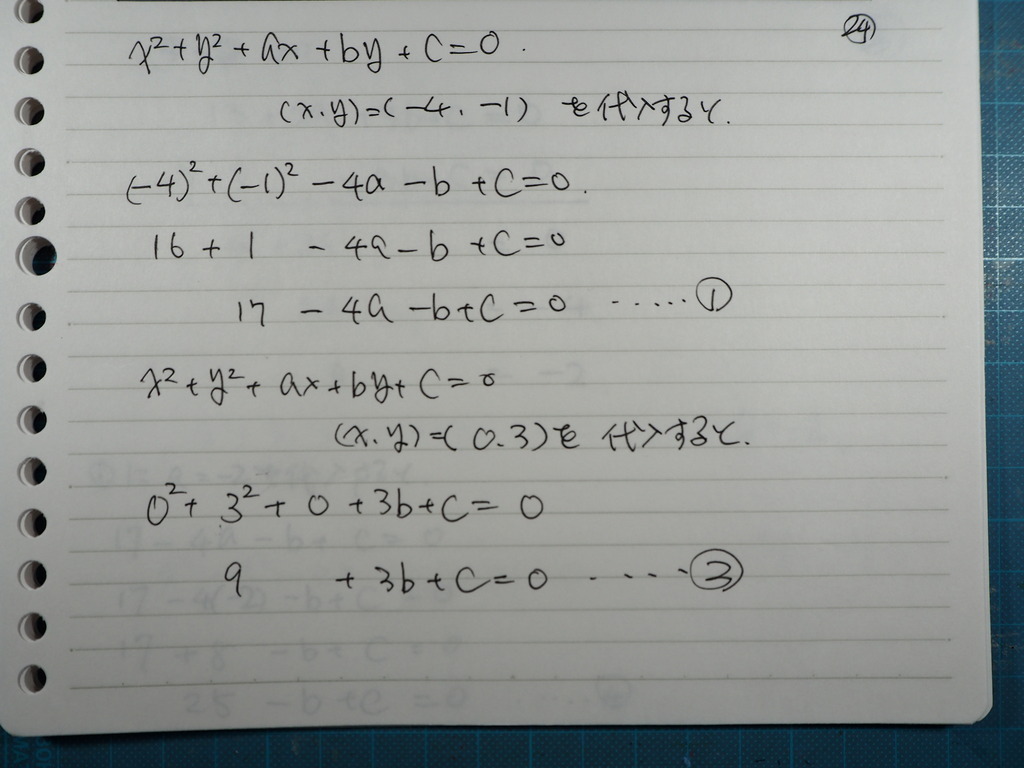 24
x²+y²+ax+by+C=0.
(x.y)=(-4.-1) を代入すると.
(-4)²+(-1)²-4a-b+C=0.
16+1 -4a-b+C=0
17 -4a-b+C=0 ······①
x²+y²+ax+by+C=0
(x.y)=(0.3)を代入すると.
0²+3²+0+3b+C=0
9 +3b+C=0 ·····③